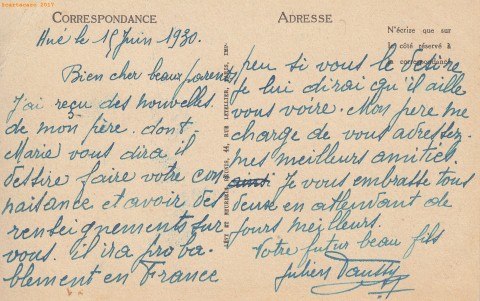 CORRESPONDANCE
Hué le 15 Juin 1930.
Bien cher beaux parents
J'ai reçu des nouvelles
de mon père. dont
Marie vous dira il
dessire faire votre con
naisance et avoir des
renseignements sur
vous. il ira proba
blement en France
ADRESSE
N'écrire que sur
le côté réservé à
la correspondance
peu si vous le désire
je lui dirai qu'il aille
vous voire. Mon père me
charge de vous adressez
mes meilleurs amitiel.
ainsi Je vous embrasse tous
deux en attendant de
jours meilleurs.
Votre futur beau fils
Julien